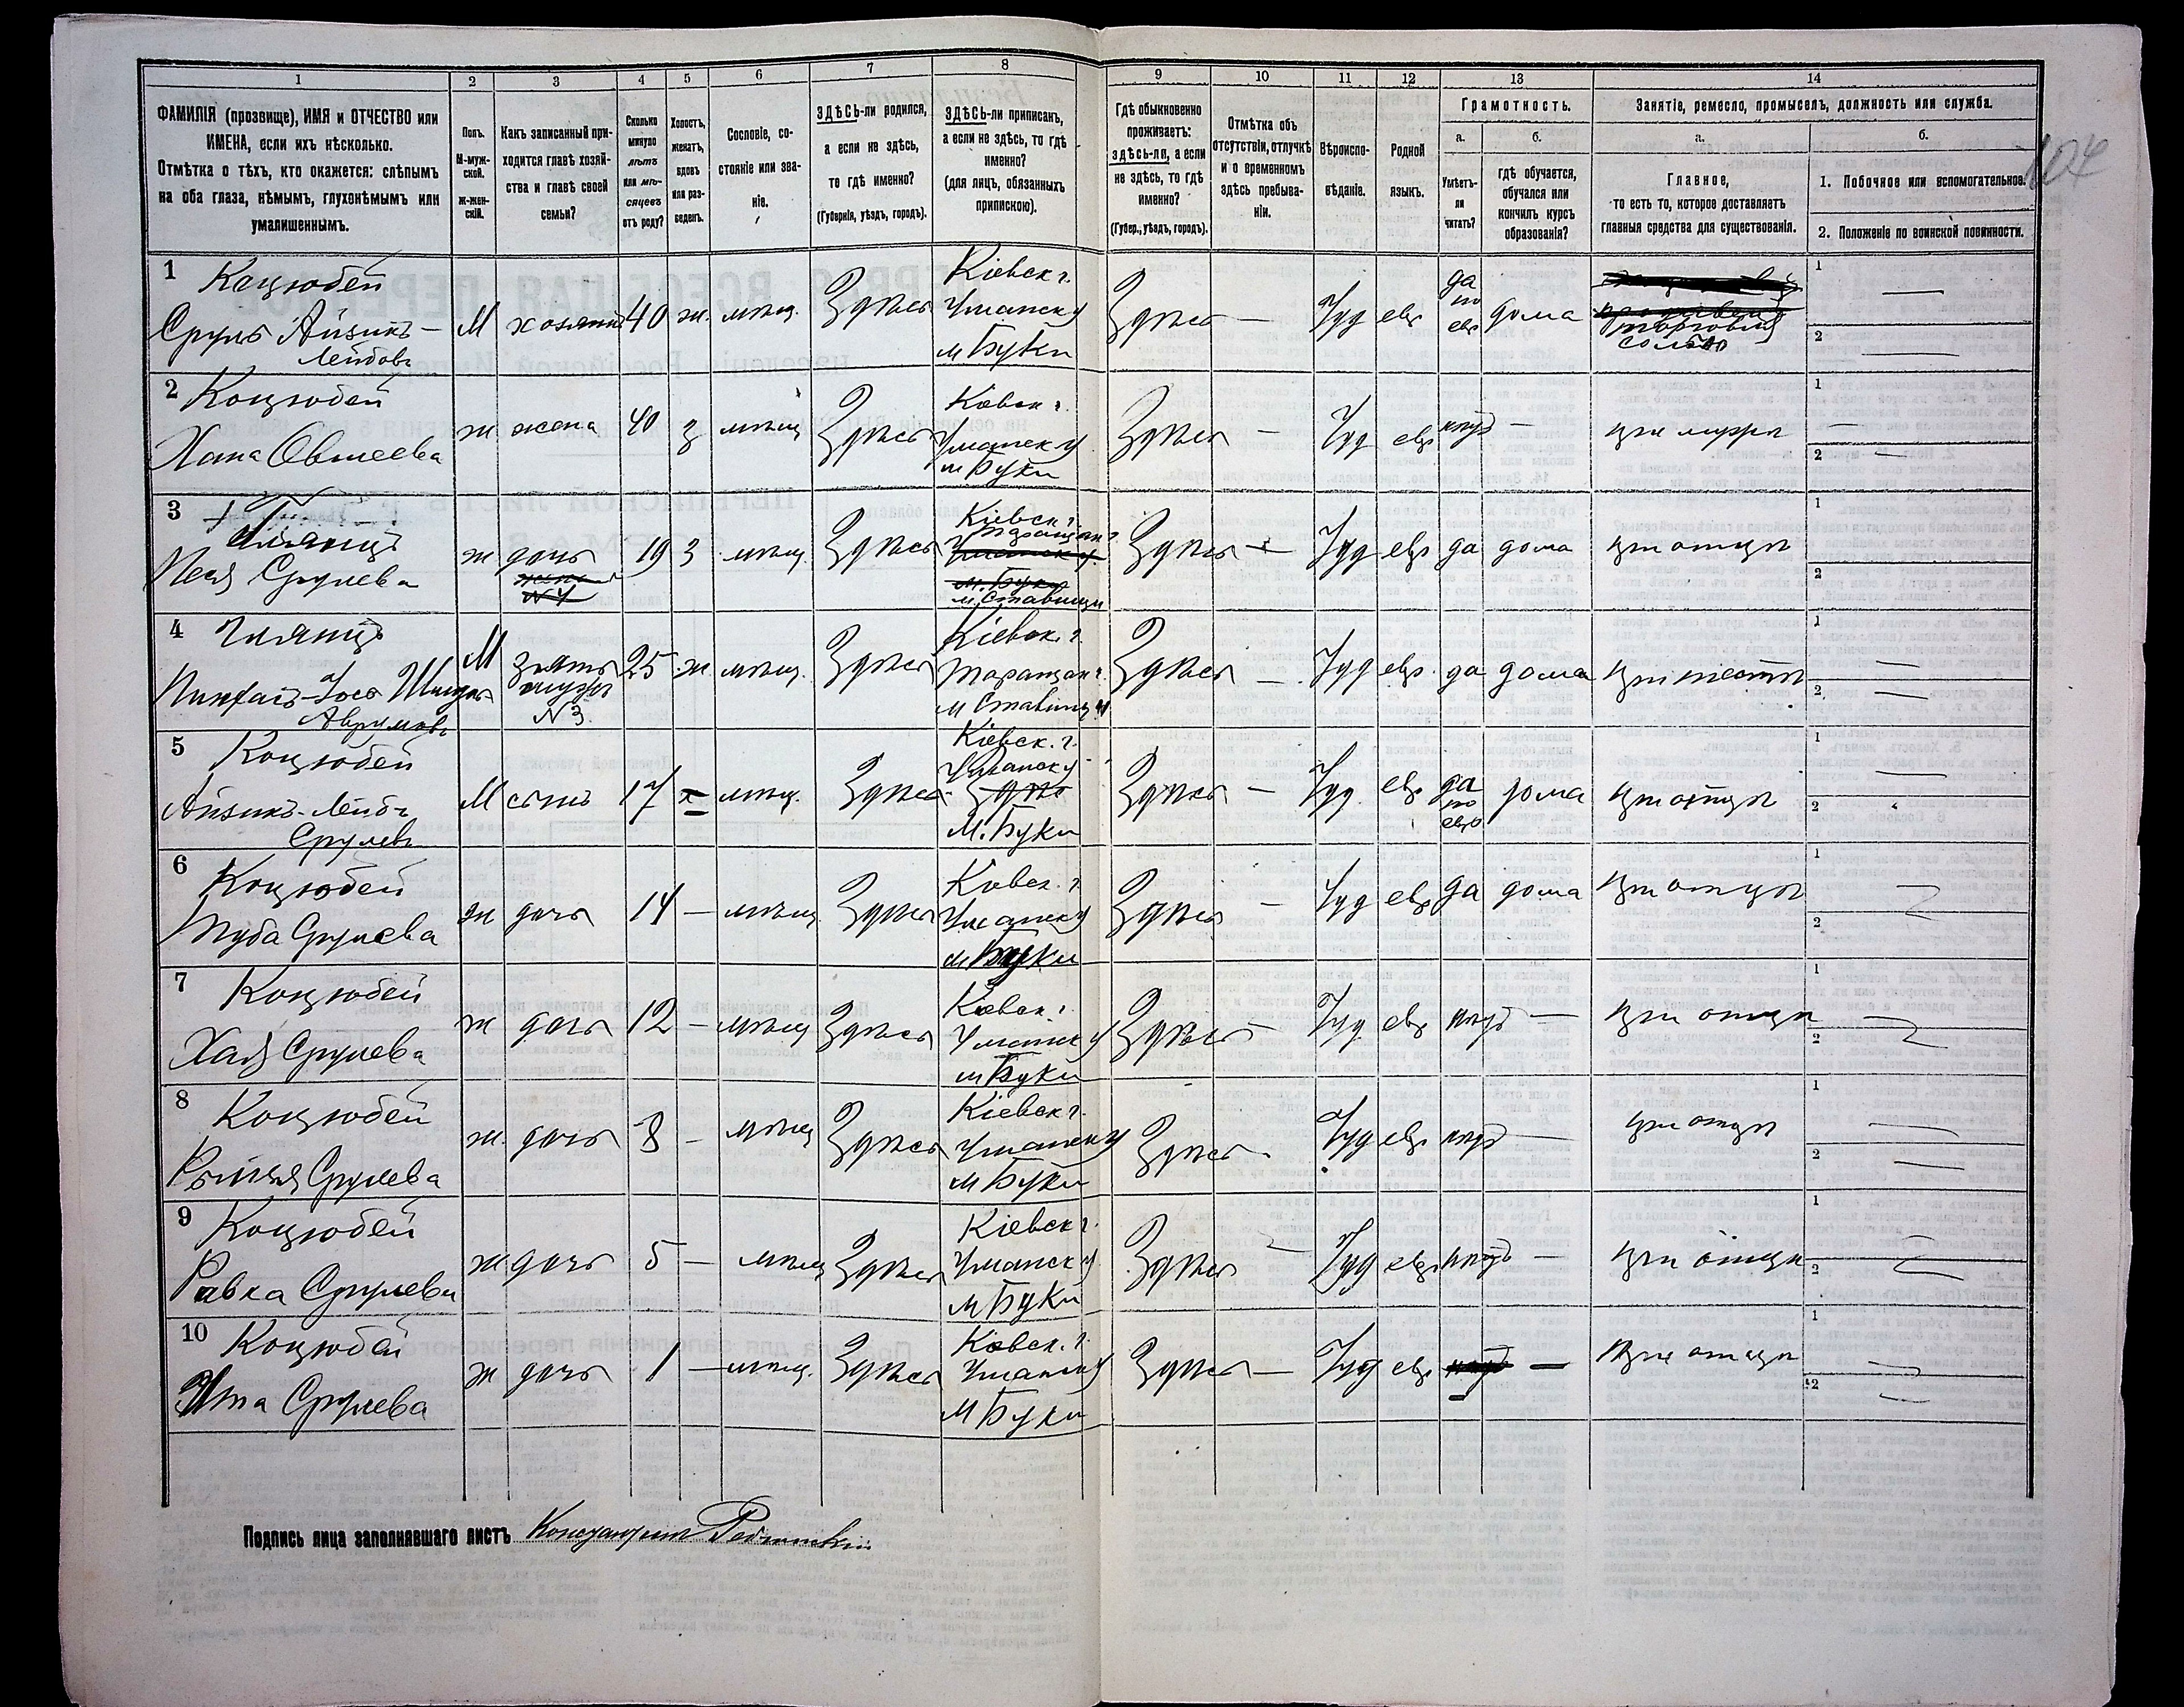 1 2 3 4 5 6 7 8 9 10 11 12 13 14
ФАМИЛІЯ (прозвище), ИМЯ и ОТЧЕСТВО или
ИМЕНА, если ихъ нѣсколько.
Отмѣтка о тѣхъ, кто окажется: слѣпымъ
на оба глаза, нѣмымъ, глухонѣмымъ или
умалишеннымъ.
Полъ.
М-муж-
ской.
ж-жен-
скій.
Какъ записанный при-
ходится главѣ хозяй-
ства и главѣ своей
семьи?
Сколько
минуло
лѣтъ
или мѣ-
сяцевъ
отъ роду?
Холостъ,
женатъ,
вдовъ
или раз-
веденъ.
Сословіе, со-
стояніе или зва-
ніе.
ЗДѢСЬ-ли родился,
а если не здѣсь,
то гдѣ именно?
(Губернія, уѣздъ, городъ).
ЗДѢСЬ-ли приписанъ,
а если не здѣсь, то гдѣ
именно?
(для лицъ, обязанныхъ
припискою).
Гдѣ обыкновенно
проживаетъ:
здѣсь-ли, а если
не здѣсь, то гдѣ
именно?
(Губер., уѣздъ, городъ).
Отмѣтка объ
отсутствіи, отлучкѣ
и о временномъ
здѣсь пребыва-
ніи.
Вѣроиспо-
вѣданіе.
Родной
языкъ.
Грамотность.
а.
Умѣетъ-
ли
читать?
б.
гдѣ обучается,
обучался или
кончилъ курсъ
образованія?
Занятіе, ремесло, промыселъ, должность или служба.
а.
Главное,
то есть то, которое доставляетъ
главныя средства для существованія.
б.
1. Побочное или вспомогательное.
2. Положеніе по воинской повинности.
104
1 Коцюбей
Сруль Айзикъ-
Лейбовъ
М хозяинъ 40 ж. мѣщ. Здѣсь
Кіевск г.
Уманск у
м Буки
Здѣсь — Іуд евр
да
по
евр
дома
торговля
солью
1
2
2 Коцюбей
Хана Овшеева
ж жена 40 з мѣщ Здѣсь
Кіевск г.
Уманск у
м Буки
Здѣсь — Іуд евр нѣтъ — при мужѣ
1
2
3
Песя Срулева
ж дочь 19 з мѣщ. Здѣсь
№ 4
Кіевск г.
Таращан
Уманск у.
м. Буки
м. Ставищи
Здѣсь — Іуд евр да дома при отцѣ
1
2
4
Аврумовъ
М зять 25 ж мѣщ. Здѣсь
мужъ
№ 3.
Кіевск. г.
Таращан
м Ставищи
Здѣсь — Іуд евр. да дома при тестѣ
1
2
5 Коцюбей
Айзикъ-Лейбъ
Срулевъ
М сынъ 17 х мѣщ. Здѣсь
Кіевск. г.
Уманск у
Здѣ
М. Буки
Здѣсь — Іуд. евр
да
по
евр
дома при отцѣ
1
2
6 Коцюбей
Туба Срулева
ж дочь 14 — мѣщ. Здѣсь
Кіевск. г.
Уманск у
м Буки
Здѣсь — Іуд евр да дома при отцѣ
1
2
7 Коцюбей
Хая Срулева
ж дочь 12 — мѣщ Здѣсь
Кіевск. г.
Уманск у
м Буки
Здѣсь — Іуд евр нѣтъ — при отцѣ
1
2
8 Коцюбей
Срулева
ж. дочь 8 — мѣщ Здѣсь
Кіевск г.
Уманск у
м Буки
Здѣсь — Іуд евр нѣтъ — при отцѣ
1
2
9 Коцюбей
Ривка Срулева
ж дочь 5 — мѣщ Здѣсь
Кіевск г.
Уманск у
м Буки
Здѣсь — Іуд евр нѣтъ — при отцѣ
1
2
10 Коцюбей
Ита Срулева
ж дочь 1 — мѣщ. Здѣсь
Кіевск. г.
Уманск у
м Буки
Здѣсь — Іуд евр — при отцѣ
1
2
Подпись лица заполнявшаго листъ